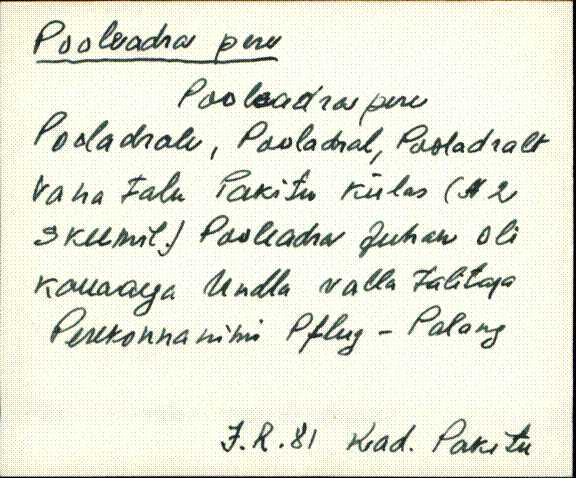 Pooleadra pere
Pooleadra pere
Pooladrale, Pooladral, Pooladralt
vana talu Pakitu külas (A 2
Pooleadra Juhan oli
kauaaega Undla valla talitaja
Perekonnanimi Pflug - Palang
F.R. 81 Kad. Pakitu